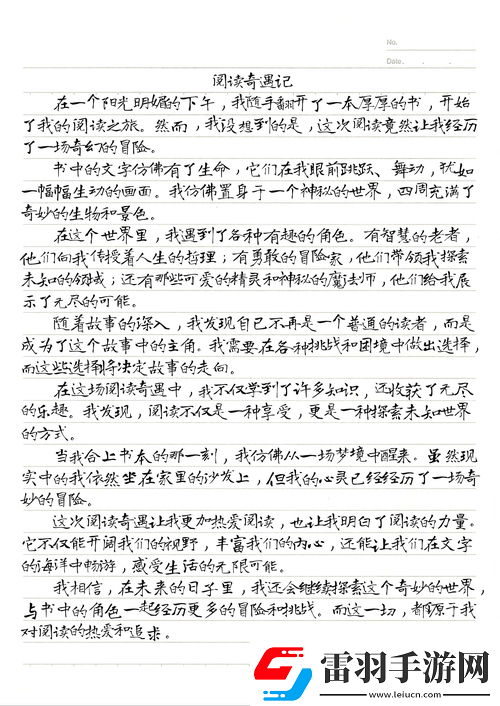 No.
Date.
阅读奇遇记
在一个阳光明媚的下午，我随手翻开了一本厚厚的书，开始
了我的阅读之旅。然而，我没想到的是，这次阅读竟然让我经历
了一场奇幻的冒险。
书中的文字仿佛有了生命，它们在我眼前跳跃、舞动，犹如
一幅幅生动的画面。我仿佛置身于一个神秘的世界，四周充满了
奇妙的生物和景色。
在这个世界里，我遇到了各种有趣的角色。有智慧的老者，
他们向我传授着人生的哲理；有勇敢的冒险家，他们带领我探索
未知的领域；还有那些可爱的精灵和神秘的魔法师，他们给我展
示了无尽的可能。
随着故事的深入，我发现自己不再是一个普通的读者，而是
成为了这个故事中的主角。我需要在各种挑战和困境中做出选择，
而这些选择将决定故事的走向。
在这场阅读奇遇中，我不仅学到了许多知识，还收获了无尽
的乐趣。我发现，阅读不仅是一种享受，更是一种探索未知世界
的方式。
当我合上书本的那一刻，我仿佛从一场梦境中醒来。虽然现
实中的我依然坐在家里的沙发上，但我的心灵已经经历了一场奇
妙的冒险。
这次阅读奇遇让我更加热爱阅读，也让我明白了阅读的力量。
它不仅能开阔我们的视野，丰富我们的内心，还能让我们在文字
的海洋中畅游，感受生活的无限可能。
我相信，在未来的日子里，我还会继续探索这个奇妙的世界，
与书中的角色一起经历更多的冒险和挑战。而这一切，都源于我
对阅读的热爱和追求。
雷羽手游网
www.leiucn.com